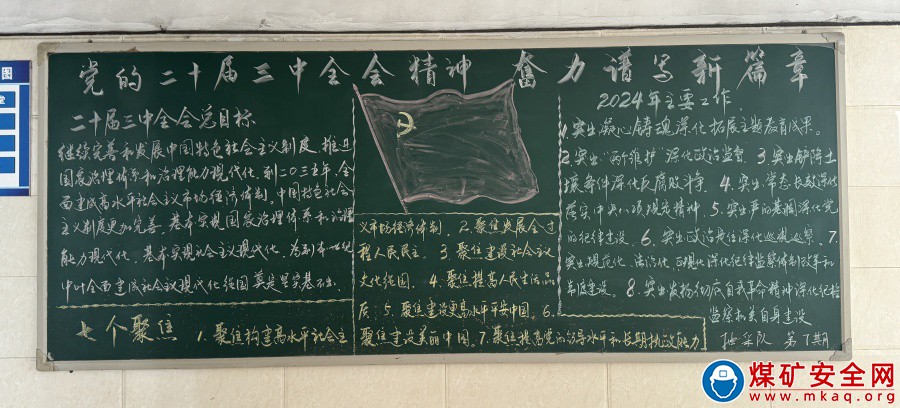 党的二十届三中全会精神 奋力谱写新篇章
二十届三中全会总目标
继续完善和发展中国特色社会主义制度，推进
国家治理体系和治理能力现代化。到二〇三五年，全
面建成高水平社会主义市场经济体制，中国特色社会
主义制度更加完善，基本实现国家治理体系和治理
能力现代化，基本实现社会主义现代化，为到本世纪
中叶全面建成社会主义现代化强国奠定坚实基础。
七个聚焦
1.聚焦构建高水平社会主
义市场经济体制。2.聚焦发展全过
程人民民主。3.聚焦建设社会主义
文化强国。4.聚焦提高人民生活品
质。5.聚焦建设更高水平平安中国。6.
聚焦建设美丽中国。7.聚焦提高党的领导水平和长期执政能力
2024年主要工作
1.突出凝心铸魂深化拓展主题教育成果。
2.突出“两个维护”深化政治监督。3.突出铲除土
壤条件深化反腐败斗争。4.突出常态长效深化
落实中央八项规定精神。5.突出严的基调深化党
的纪律建设。6.突出政治责任深化巡视巡察。7.
突出规范化、法治化、正规化深化纪检监察体制改革和
制度建设。8.突出发扬彻底自我革命精神深化纪检
监察机关自身建设
采队 第7期
图
煤矿安全网
www.mkaq.org